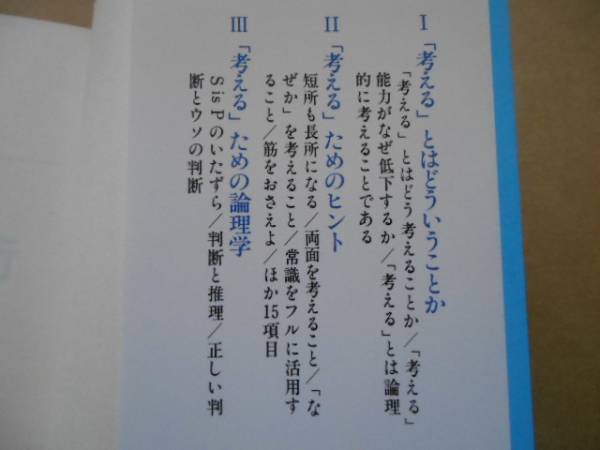 I 「考える」とはどういうことか
「考える」とはどう考えることか/「考える」
能力がなぜ低下するか/「考える」とは論理
的に考えることである
II 「考える」ためのヒント
短所も長所になる/両面を考えること/「な
ぜか」を考えること/常識をフルに活用す
ること/筋をおさえよ/ほか15項目
III 「考える」ための論理学
S is Pのいたずら/判断と推理/正しい判
断とウソの判断